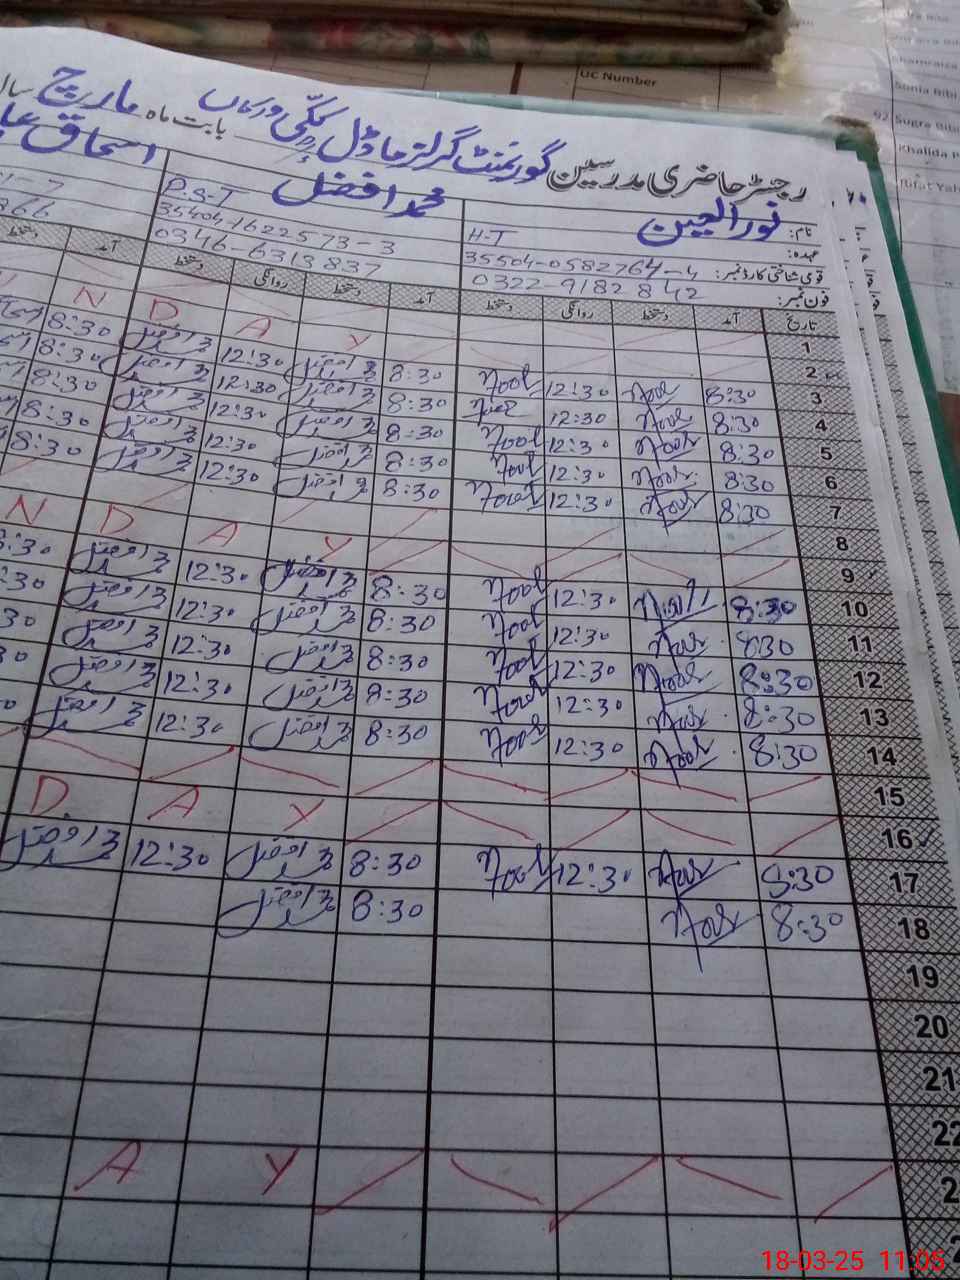 UC Number
Sughra Bibi
Shamraiza
Sonia Bibi
92 Sugra Bibi
Khalida P
Rifat Yah
رجسٹر حاضری مدرسین گورنمنٹ گرلز ماڈل پکی ورکاں بابت ماہ مارچ سال
نام: نور العین محمد افضل اسحاق
عہدہ: H-T P.S-T
قومی شناختی کارڈ نمبر: 35504-0582764-4 35404-1622573-3
فون نمبر: 0322-9182842 0346-6313837
تاریخ آمد دستخط روانگی دستخط آمد دستخط روانگی دستخط آمد دستخط
1
2 N D A Y
3 8:30 Noor 12:30 Noor 8:30 محمد افضل 12:30 محمد افضل 8:30
4 8:30 Noor 12:30 Noor 8:30 محمد افضل 12:30 محمد افضل 8:30
5 8:30 Noor 12:30 Noor 8:30 محمد افضل 12:30 محمد افضل 8:30
6 8:30 Noor 12:30 Noor 8:30 محمد افضل 12:30 محمد افضل 8:30
7 8:30 Noor 12:30 Noor 8:30 محمد افضل 12:30 محمد افضل 8:30
8
9 N D A Y
10 8:30 Noor 12:30 Noor 8:30 محمد افضل 12:30 محمد افضل 8:30
11 8:30 Noor 12:30 Noor 8:30 محمد افضل 12:30 محمد افضل :30
12 8:30 Noor 12:30 Noor 8:30 محمد افضل 12:30 محمد افضل 30
13 8:30 Noor 12:30 Noor 8:30 محمد افضل 12:30 محمد افضل 30
14 8:30 Noor 12:30 Noor 8:30 محمد افضل 12:30 محمد افضل
15
16 D A Y
17 8:30 Noor 12:30 Noor 8:30 محمد افضل 12:30 محمد افضل
18 8:30 Noor 8:30 محمد افضل
19
20
21
22
2 A Y
2
18-03-25 11:05